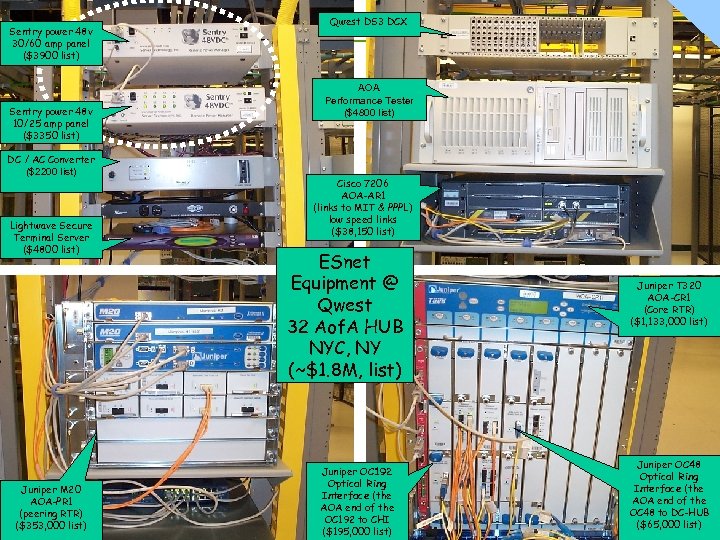 Sentry power 48v
30/60 amp panel
($3900 list)
Sentry
48VDC
Qwest DS3 DCX
Sentry power 48v
10/25 amp panel
($3350 list)
Sentry
48VDC
AOA
Performance Tester
($4800 list)
DC / AC Converter
($2200 list)
Cisco 7206
AOA-AR1
(links to MIT & PPPL)
low speed links
($38,150 list)
Lightwave Secure
Terminal Server
($4800 list)
ESnet
Equipment @
Qwest
32 AofA HUB
NYC, NY
(~$1.8M, list)
M20
M20
Juniper
Juniper
T320
AOA-CR1
Juniper T320
AOA-CR1
(Core RTR)
($1,133,000 list)
Juniper M20
AOA-PR1
(peering RTR)
($353,000 list)
Juniper OC192
Optical Ring
Interface (the
AOA end of the
OC192 to CHI
($195,000 list)
Juniper OC48
Optical Ring
Interface (the
AOA end of the
OC48 to DC-HUB
($65,000 list)